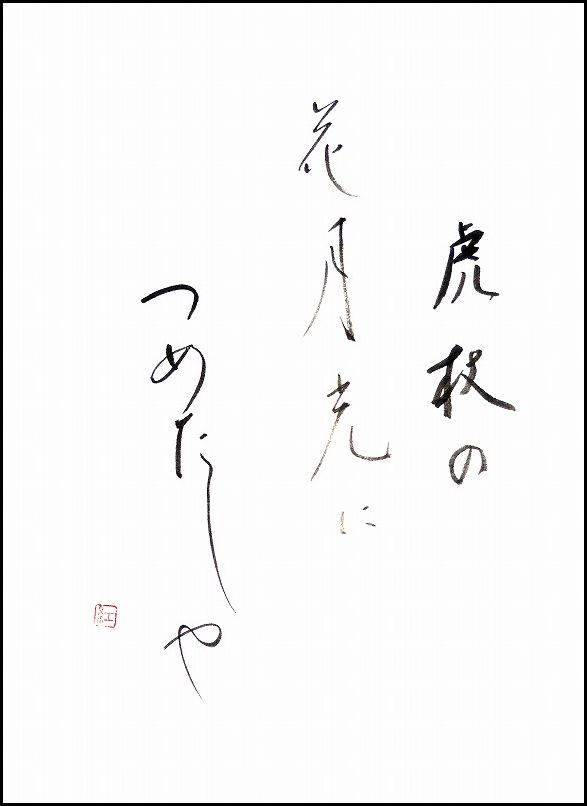 虎杖の
花月光に
つめたしや